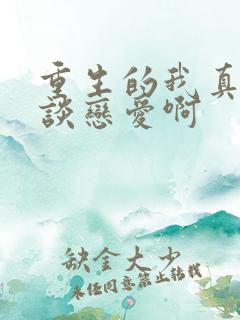 重生的我真
談戀愛啊
缺金大少
未经同意禁止转载